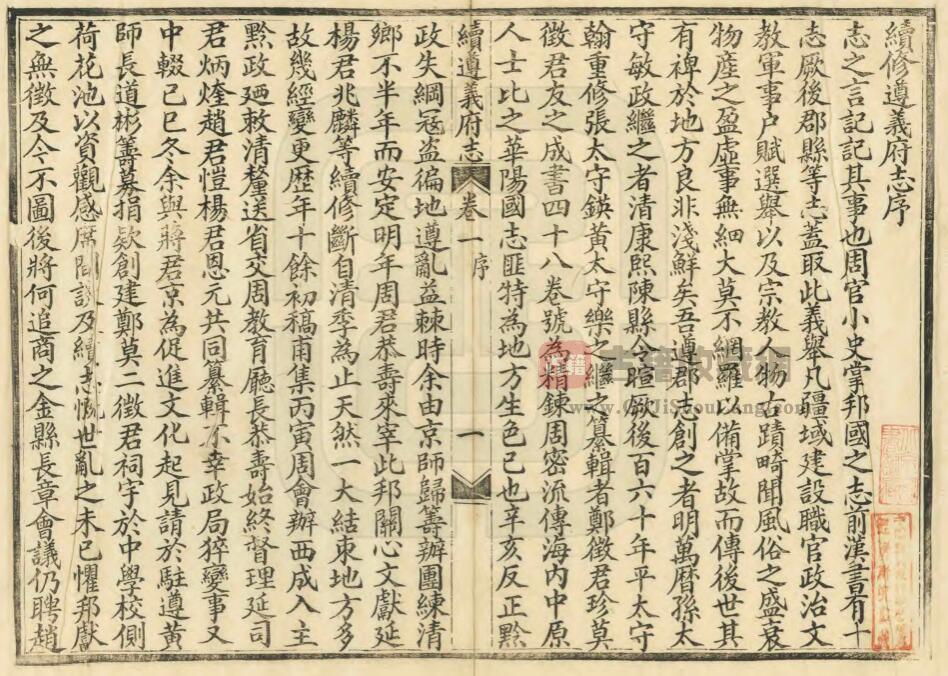 續修遵義府志序
志之言記記其事也周官小史掌邦國之志前漢書有十
志厥後郡縣等志蓋取此義舉凡疆域建設職官政治文
教軍事户賦選舉以及宗教人物古蹟畸聞風俗之盛衰
物産之盈虛事無細大莫不網羅以備掌故而傳後世其
有裨於地方良非淺鮮矣吾遵郡志創之者明萬曆孫太
守敏政繼之者清康熙陳縣令瑄厥後百六十年平太守
翰重修張太守鍈黃太守樂之繼之纂輯者鄭徵君珍莫
徵君友之成書四十八卷號為精鍊周密流傳海内中原
人士比之華陽國志匪特為地方生色已也辛亥反正黔
續遵義府志 卷一 序 一
政失綱寇盗徧地遵亂益棘時余由京師歸籌辦團練清
鄉不半年而安定明年周君恭壽來宰此邦關心文獻延
楊君兆麟等續修斷自清季為止天然一大結束地方多
故幾經變更歷年十餘初稿甫集丙寅周會辦西成入主
黔政廼敕清釐送省交周教育廳長恭壽始終督理延司
君炳煃趙君愷楊君恩元共同纂輯不幸政局猝變事又
中輟已巳冬余與蔣君京為促進文化起見請於駐遵黃
師長道彬籌募捐欵創建鄭莫二徵君祠宇於中學校側
荷花池以資觀感席間談及續志慨世亂之未已懼邦獻
之無徵及今不圖後將何追商之金縣長章會議仍聘趙
書籍收藏網
www.GuJiShouCang.com